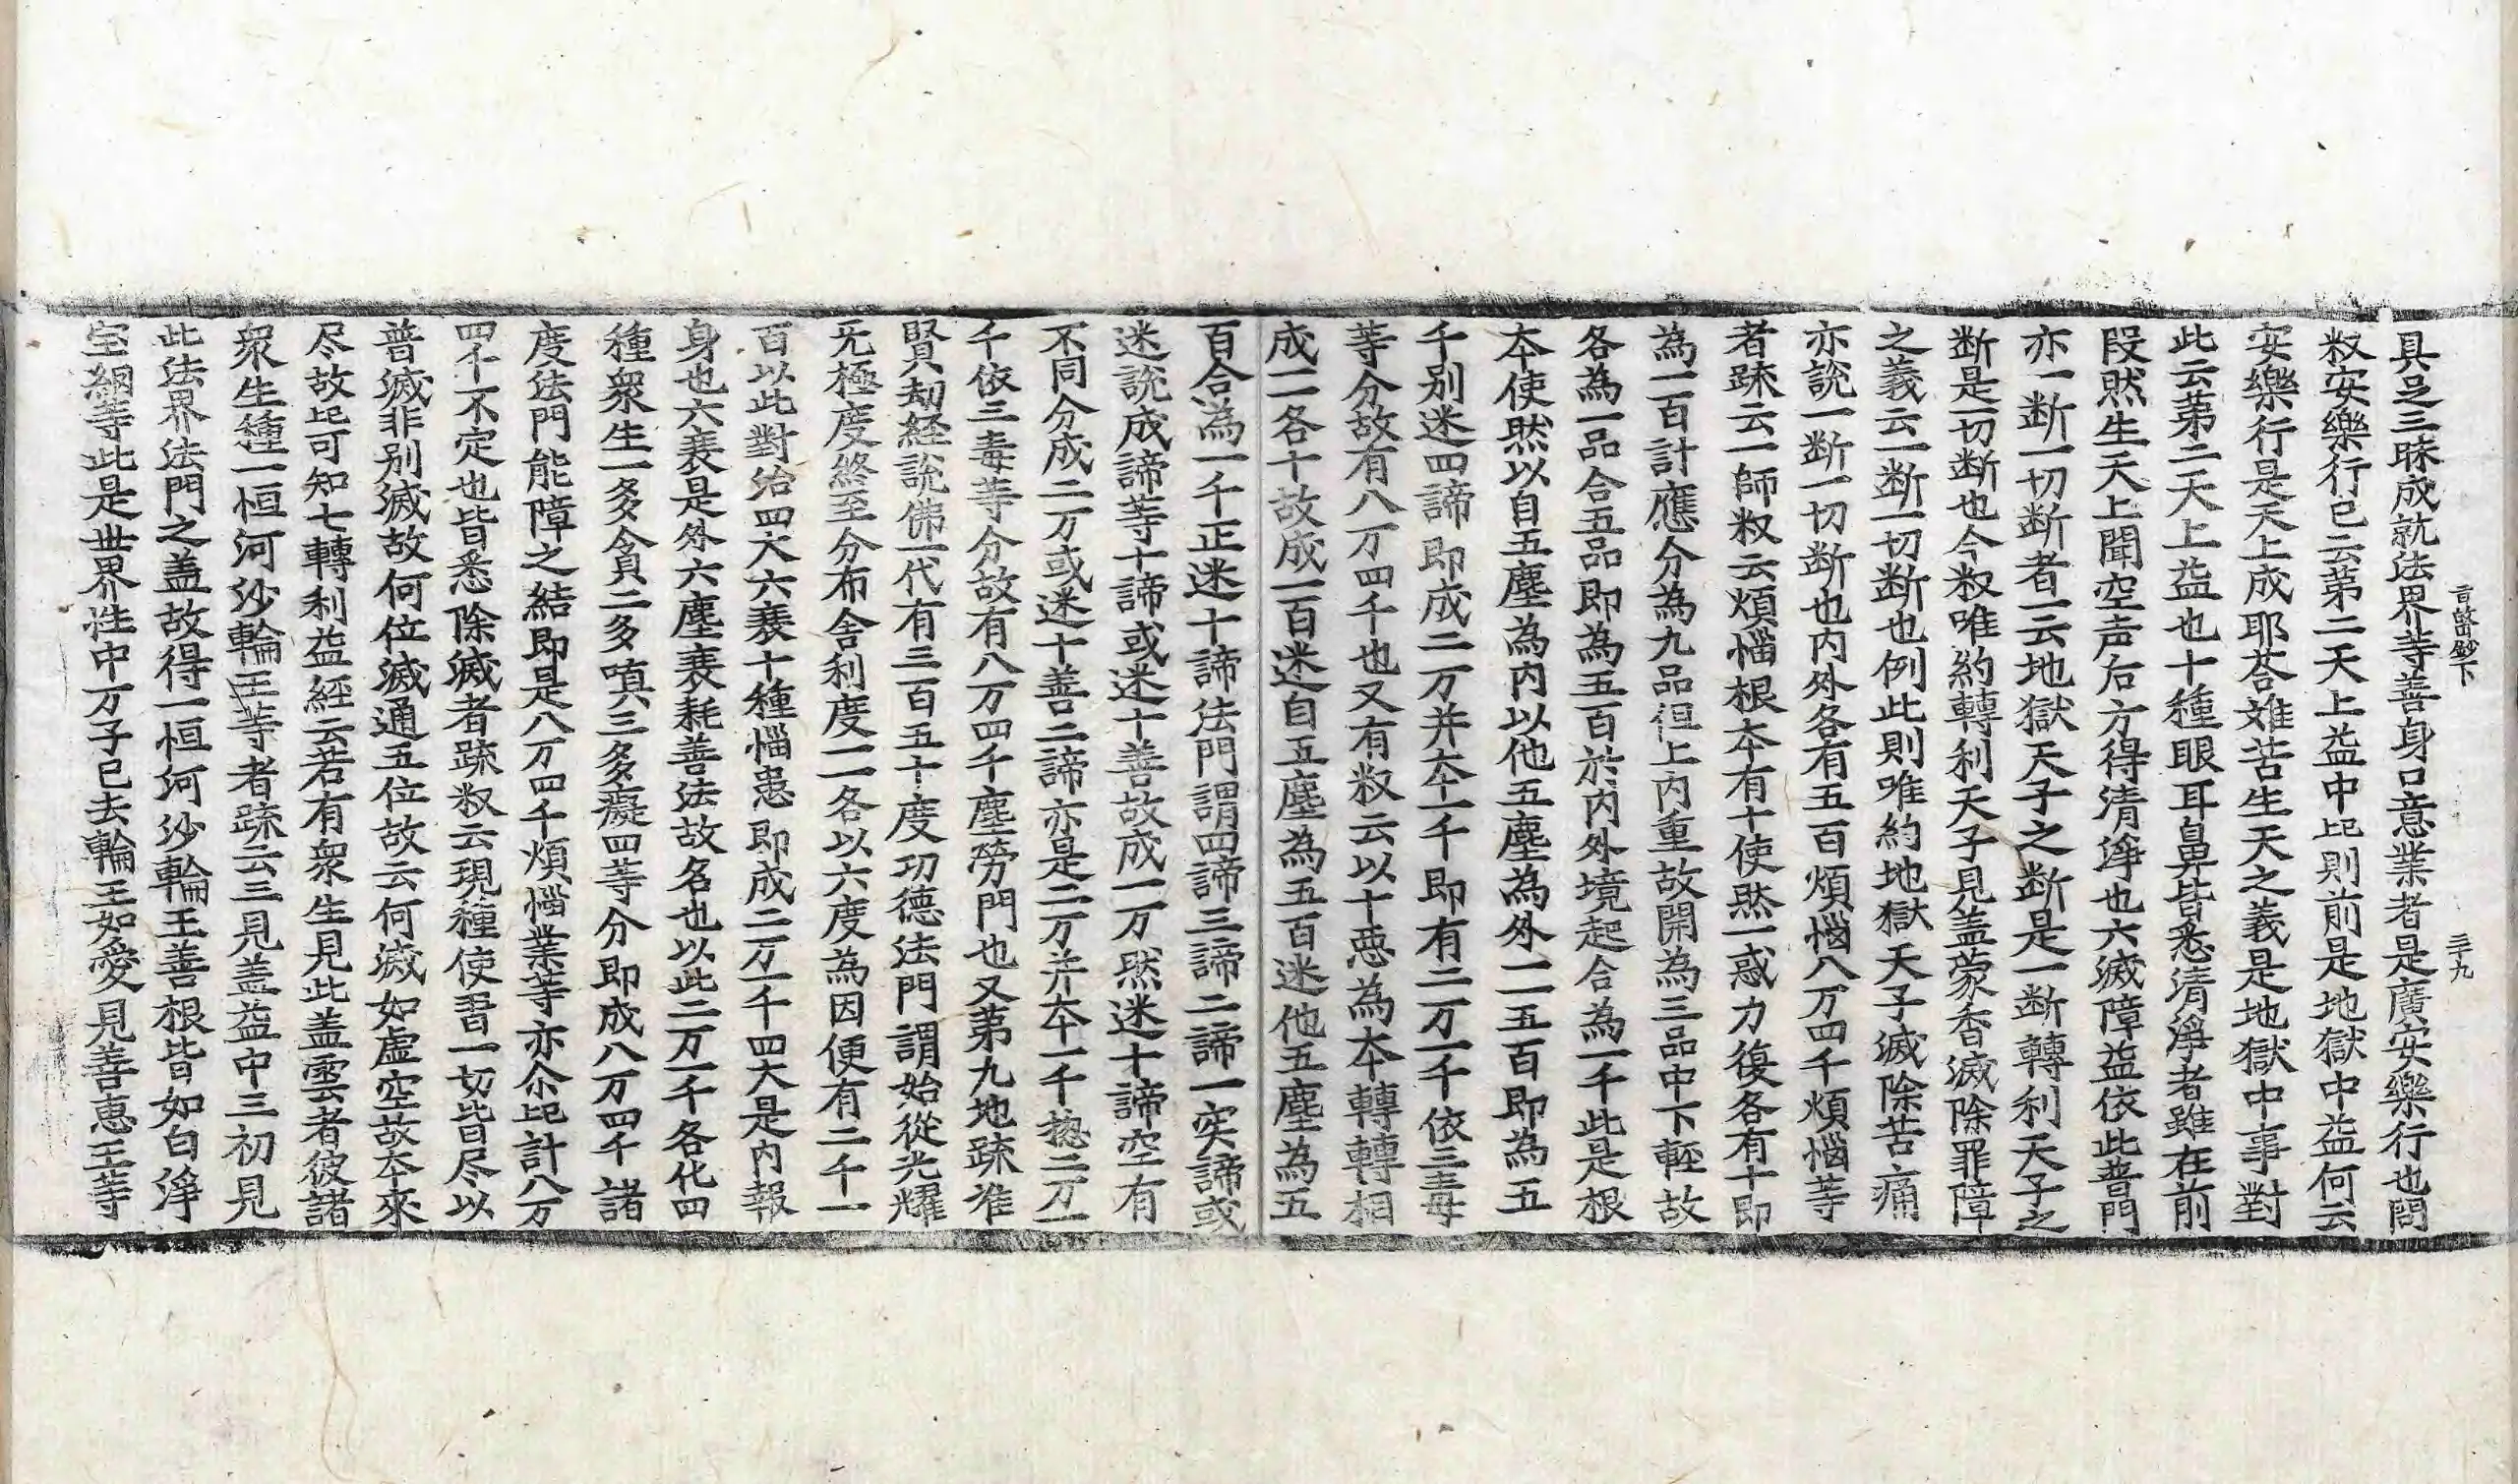 旨歸鈔下　三十九
具足三昧成就法界等善身口意業者是廣安樂行也問
釈安樂行已云第二天上益中此則前是地獄中益何云
安樂行是天上成耶荅雖苦生天之義是地獄中事對
此云第二天上益也十種眼耳鼻皆悉清淨者雖在前
段然生天上聞空声右方得清淨也六滅障益依此普門
亦一断一切断者一云地獄天子之断是一断轉利天子之
断是一切断也今釈唯約轉利天子見盖蒙香滅除罪障
之義云一断一切断也例此則唯約地獄天子滅除苦痛
亦說一断一切断也内外各有五百煩惱八万四千煩惱等
者疏云一師釈云煩惱根本有十使然一惑力復各有十即
為一百計應分為九品但上内重故開為三品中下輕故
各為一品合五品即為五百於内外境起合為一千此是根
本使然以自五塵為内以他五塵為外一一五百即為五
千别迷四諦即成二万并本一千即有二万一千依三毒
等分故有八万四千也又有釈云以十惡為本轉轉相
成一各十故成一百迷自五塵為五百迷他五塵為五
百合為一千正迷十諦法門謂四諦三諦二諦一实諦或
迷說成諦等十諦或迷十善故成一万然迷十諦空有
不同分成二万或迷十善二諦亦是二万并本一千揔二万一
千依三毒等分故有八万四千塵勞門也又第九地疏准
賢劫経說佛一代有三百五十度功德法門謂始從光耀
无極度終至分布舍利度一一各以六度為因便有二千一
百以此對治四大六衰十種惱患即成二万一千四大是内報
身也六衰是外六塵衰耗善法故名也以此二万一千各化四
種衆生一多貪二多嗔三多癡四等分即成八万四千諸
度法門能障之結即是八万四千煩惱業等亦尒此計八万
四千不定也皆悉除滅者疏釈云現種使習一切皆尽以
普滅非别滅故何位滅通五位故云何滅如虛空故本來
尽故此可知七轉利益經云若有衆生見此盖雲者彼諸
衆生種一恒河沙輪王等者疏云三見盖益中三初見
此法界法門之盖故得一恒河沙輪王善根皆如白淨
宝網等此是世界性中万子已去輪王如愛見善惠王等